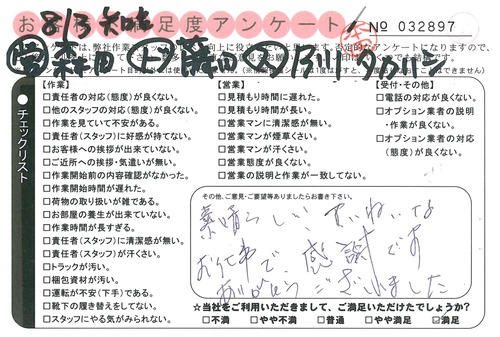 8/3
№ 032897
チェックリスト
【作業】
□責任者の対応(態度)が良くない。
□他のスタッフの対応(態度)が良くない。
□作業を見ていて不安がある。
□責任者(スタッフ)に好感が持てない。
□お客様への挨拶が出来ていない。
□ご近所への挨拶・気遣いが無い。
□作業開始前の内容確認がなかった。
□作業開始時間が遅れた。
□荷物の取り扱いが雑である。
□お部屋の養生が出来ていない。
□作業時間が長すぎる。
□責任者(スタッフ)に清潔感が無い。
□責任者(スタッフ)が汗くさい。
□トラックが汚い。
□梱包資材が汚い。
□運転が不安(下手)である。
□靴下の履き替えをしていない。
□スタッフにやる気がみられない。
【営業】
□見積もり時間に遅れた。
□見積もり時間が長い。
□営業マンに清潔感が無い。
□営業マンが煙草くさい。
□営業マンが汗くさい。
□営業態度が良くない。
□営業の説明と作業が一致してない。
【受付・その他】
□電話の対応が良くない。
□オプション業者の説明・作業が良くない。
□オプション業者の対応(態度)が良くない。
その他、ご意見・ご要望等ありましたらお書き下さい。
素晴らしい、ていねいな
お仕事で、感謝です
ありがとうございました
☆当社をご利用いただきまして、ご満足いただけたでしょうか?
□不満 □やや不満 □普通 □やや満足 ☑満足